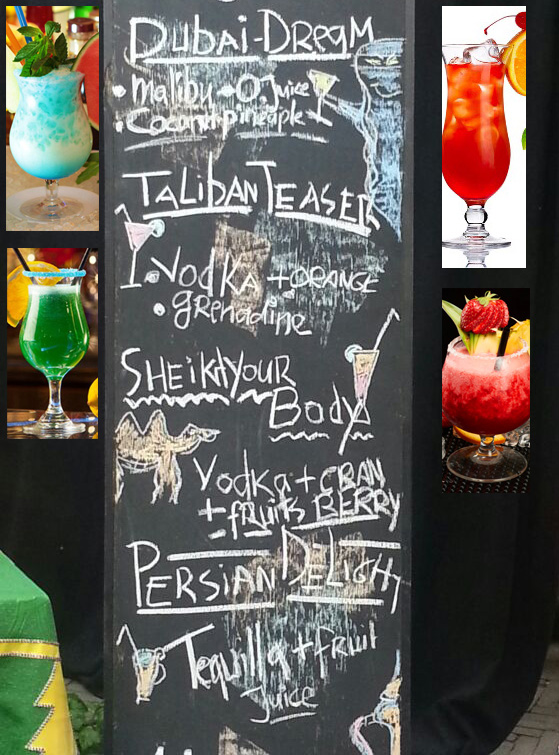 DUBAi-DReaM
• Malibu + O Juice
• Coconut pineapple
TALIBAN TEASER
• Vodka + ORANGE
• grenadine
SHEiKHYOUR
Body
Vodka + CRAN
+ fRuits BERRY
PERSiAN DELiGHT
Tequilla + fruit
Juice